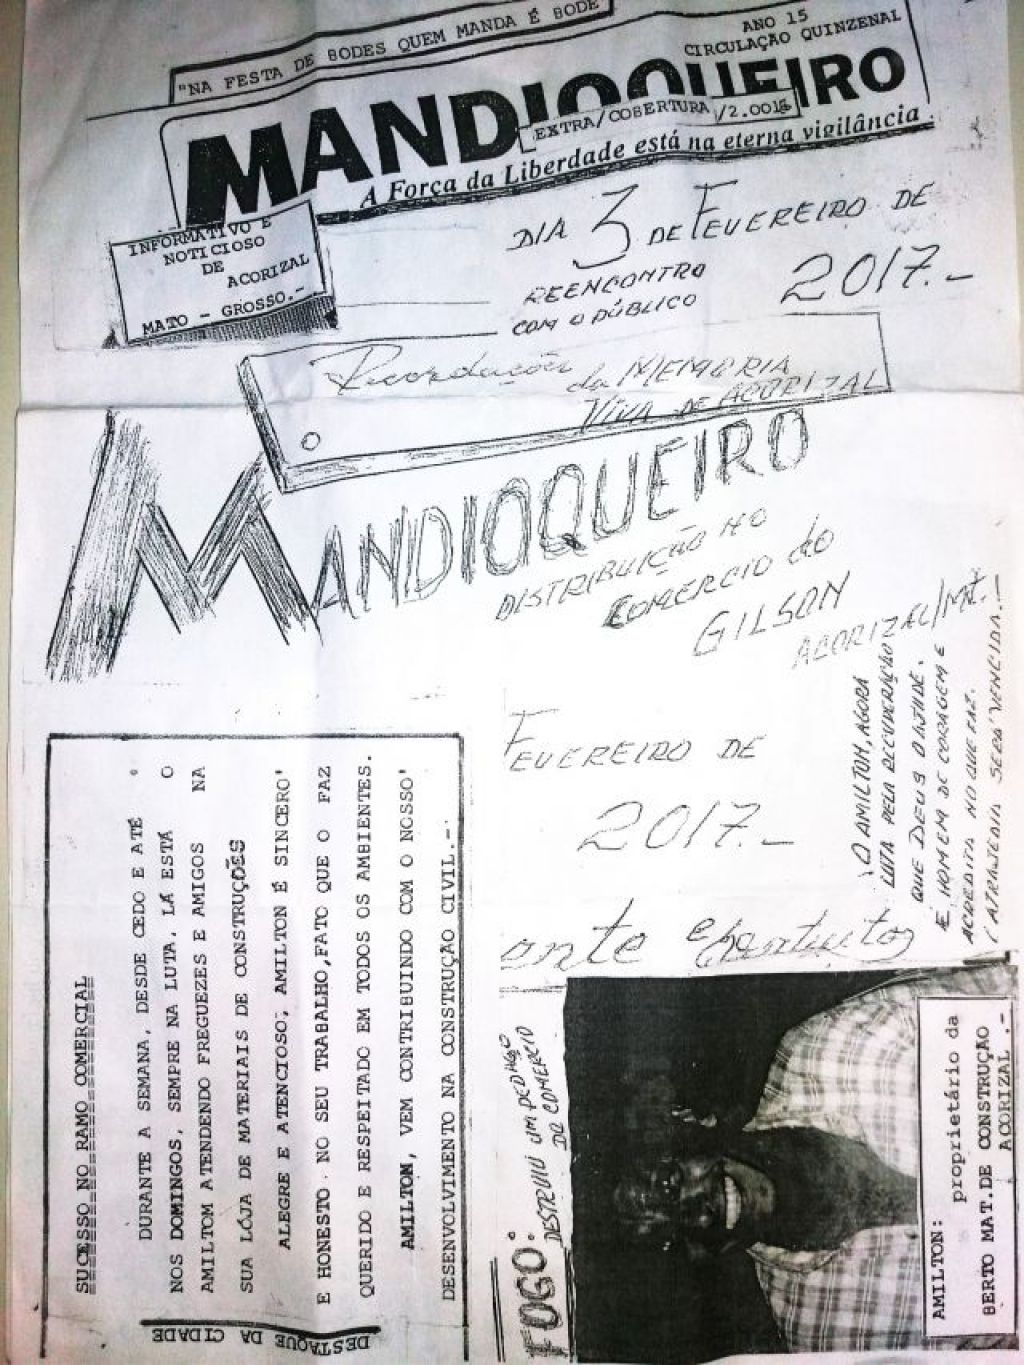 "NA FESTA DE BODES QUEM MANDA É BODE
ANO 15
CIRCULAÇÃO QUINZENAL
MANDIOQUEIRO
EXTRA/COBERTURA
A Força da Liberdade está na eterna vigilância
INFORMATIVO E
NOTICIOSO
DE
ACORIZAL
MATO - GROSSO.-
DIA 3 DE FEVEREIRO DE
2017.-
REENCONTRO
COM O PÚBLICO
Recordações da MEMORIA
VIVA DE ACORIZAL
MANDIOQUEIRO
DISTRIBUIÇÃO NO
COMERCIO do
GILSON
ACORIZAL/MT.
FEVEREIRO DE
2017.-
O AMILTON, AGORA
LUTA PELA RECUPERAÇÃO
QUE DEUS O AJUDE.
É HOMEM DE CORAGEM E
ACREDITA NO QUE FAZ.
SERÁ VENCIDA.-
SUCESSO NO RAMO COMERCIAL
DURANTE A SEMANA, DESDE CEDO E ATÉ
NOS DOMINGOS, SEMPRE NA LUTA, LÁ ESTÁ O
AMILTOM ATENDENDO FREGUEZES E AMIGOS NA
SUA LÓJA DE MATERIAIS DE CONSTRUÇÕES
ALEGRE E ATENCIOSO; AMILTON É SINCERO'
E HONESTO. NO SEU TRABALHO,FATO QUE O FAZ
QUERIDO E RESPEITADO EM TODOS OS AMBIENTES.
AMILTON, VEM CONTRIBUINDO COM O NOSSO'
DESENVOLVIMENTO NA CONSTRUÇÃO CIVIL.-
DESTAQUE DA CIDADE
FOGO:
DESTRUIU UM PEDAÇO
DO COMERCIO
AMILTON: proprietário da
BERTO MAT.DE CONSTRUÇÃO
ACORIZAL .-